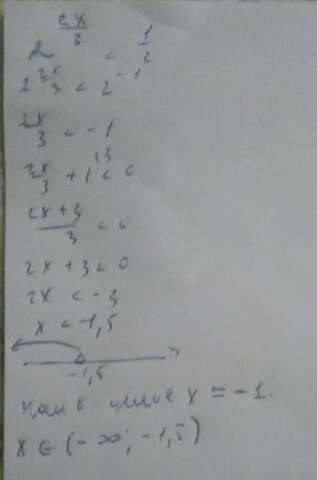 2^(2x/3) < 1/2
2^(2x/3) < 2^-1
2x/3 < -1
2x/3 + 1 < 0
(2x+3)/3 < 0
2x + 3 < 0
2x < -3
x < -1,5
-1,5
наиб. целое x = -1.
x ∈ (-∞; -1,5)